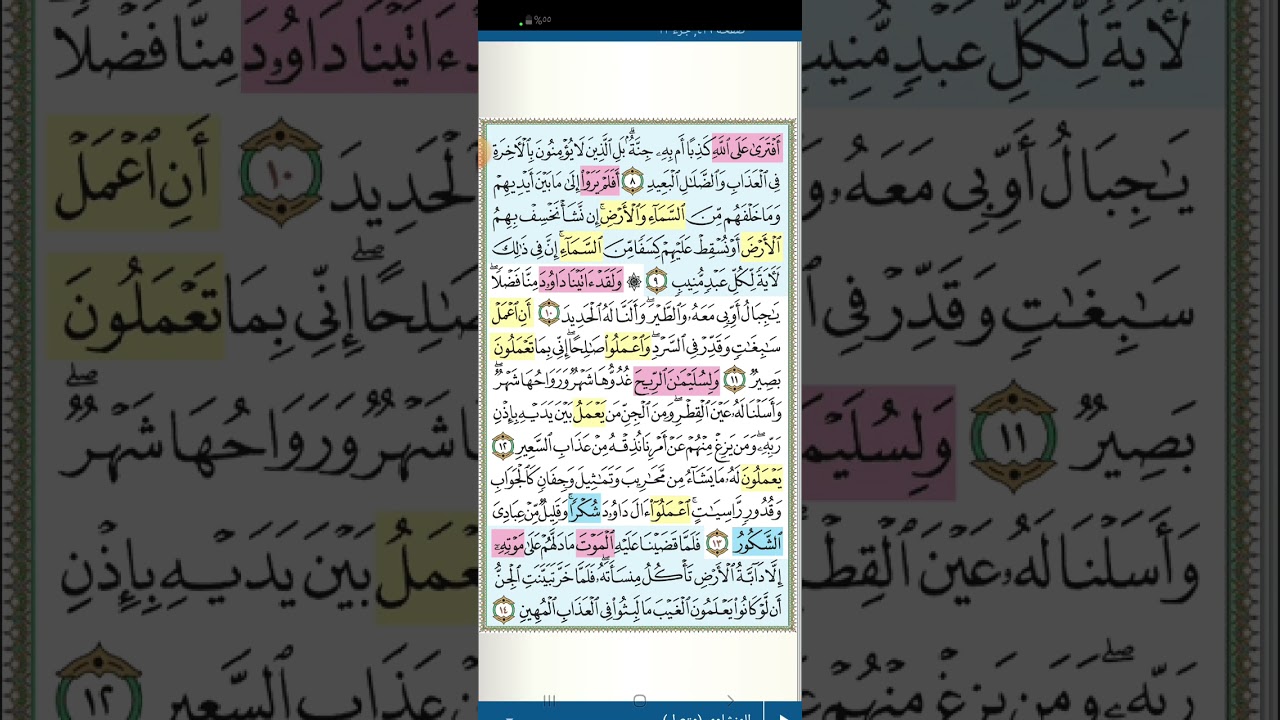 ٥٥%
أَفْتَرَىٰ عَلَى ٱللَّهِ كَذِبًا أَم بِهِۦ جِنَّةٌۢ ۗ بَلِ ٱلَّذِينَ لَا يُؤْمِنُونَ بِٱلْـَٔاخِرَةِ
فِى ٱلْعَذَابِ وَٱلضَّلَـٰلِ ٱلْبَعِيدِ ٨ أَفَلَمْ يَرَوْا۟ إِلَىٰ مَا بَيْنَ أَيْدِيهِمْ
وَمَا خَلْفَهُم مِّنَ ٱلسَّمَآءِ وَٱلْأَرْضِ ۚ إِن نَّشَأْ نَخْسِفْ بِهِمُ
ٱلْأَرْضَ أَوْ نُسْقِطْ عَلَيْهِمْ كِسَفًا مِّنَ ٱلسَّمَآءِ ۚ إِنَّ فِى ذَٰلِكَ
لَـَٔايَةً لِّكُلِّ عَبْدٍ مُّنِيبٍ ٩ ۞ وَلَقَدْ ءَاتَيْنَا دَاوُۥدَ مِنَّا فَضْلًا ۖ
يَـٰجِبَالُ أَوِّبِى مَعَهُۥ وَٱلطَّيْرَ ۖ وَأَلَنَّا لَهُ ٱلْحَدِيدَ ١٠ أَنِ ٱعْمَلْ
سَـٰبِغَـٰتٍ وَقَدِّرْ فِى ٱلسَّرْدِ ۖ وَٱعْمَلُوا۟ صَـٰلِحًا ۖ إِنِّى بِمَا تَعْمَلُونَ
بَصِيرٌ ١١ وَلِسُلَيْمَـٰنَ ٱلرِّيحَ غُدُوُّهَا شَهْرٌ وَرَوَاحُهَا شَهْرٌ ۖ
وَأَسَلْنَا لَهُۥ عَيْنَ ٱلْقِطْرِ ۖ وَمِنَ ٱلْجِنِّ مَن يَعْمَلُ بَيْنَ يَدَيْهِ بِإِذْنِ
رَبِّهِۦ ۖ وَمَن يَزِغْ مِنْهُمْ عَنْ أَمْرِنَا نُذِقْهُ مِنْ عَذَابِ ٱلسَّعِيرِ ١٢
يَعْمَلُونَ لَهُۥ مَا يَشَآءُ مِن مَّحَـٰرِيبَ وَتَمَـٰثِيلَ وَجِفَانٍ كَٱلْجَوَابِ
وَقُدُورٍ رَّاسِيَـٰتٍ ۚ ٱعْمَلُوٓا۟ ءَالَ دَاوُۥدَ شُكْرًا ۚ وَقَلِيلٌ مِّنْ عِبَادِىَ
ٱلشَّكُورُ ١٣ فَلَمَّا قَضَيْنَا عَلَيْهِ ٱلْمَوْتَ مَا دَلَّهُمْ عَلَىٰ مَوْتِهِۦٓ
إِلَّا دَآبَّةُ ٱلْأَرْضِ تَأْكُلُ مِنسَأَتَهُۥ ۖ فَلَمَّا خَرَّ تَبَيَّنَتِ ٱلْجِنُّ
أَن لَّوْ كَانُوا۟ يَعْلَمُونَ ٱلْغَيْبَ مَا لَبِثُوا۟ فِى ٱلْعَذَابِ ٱلْمُهِينِ ١٤